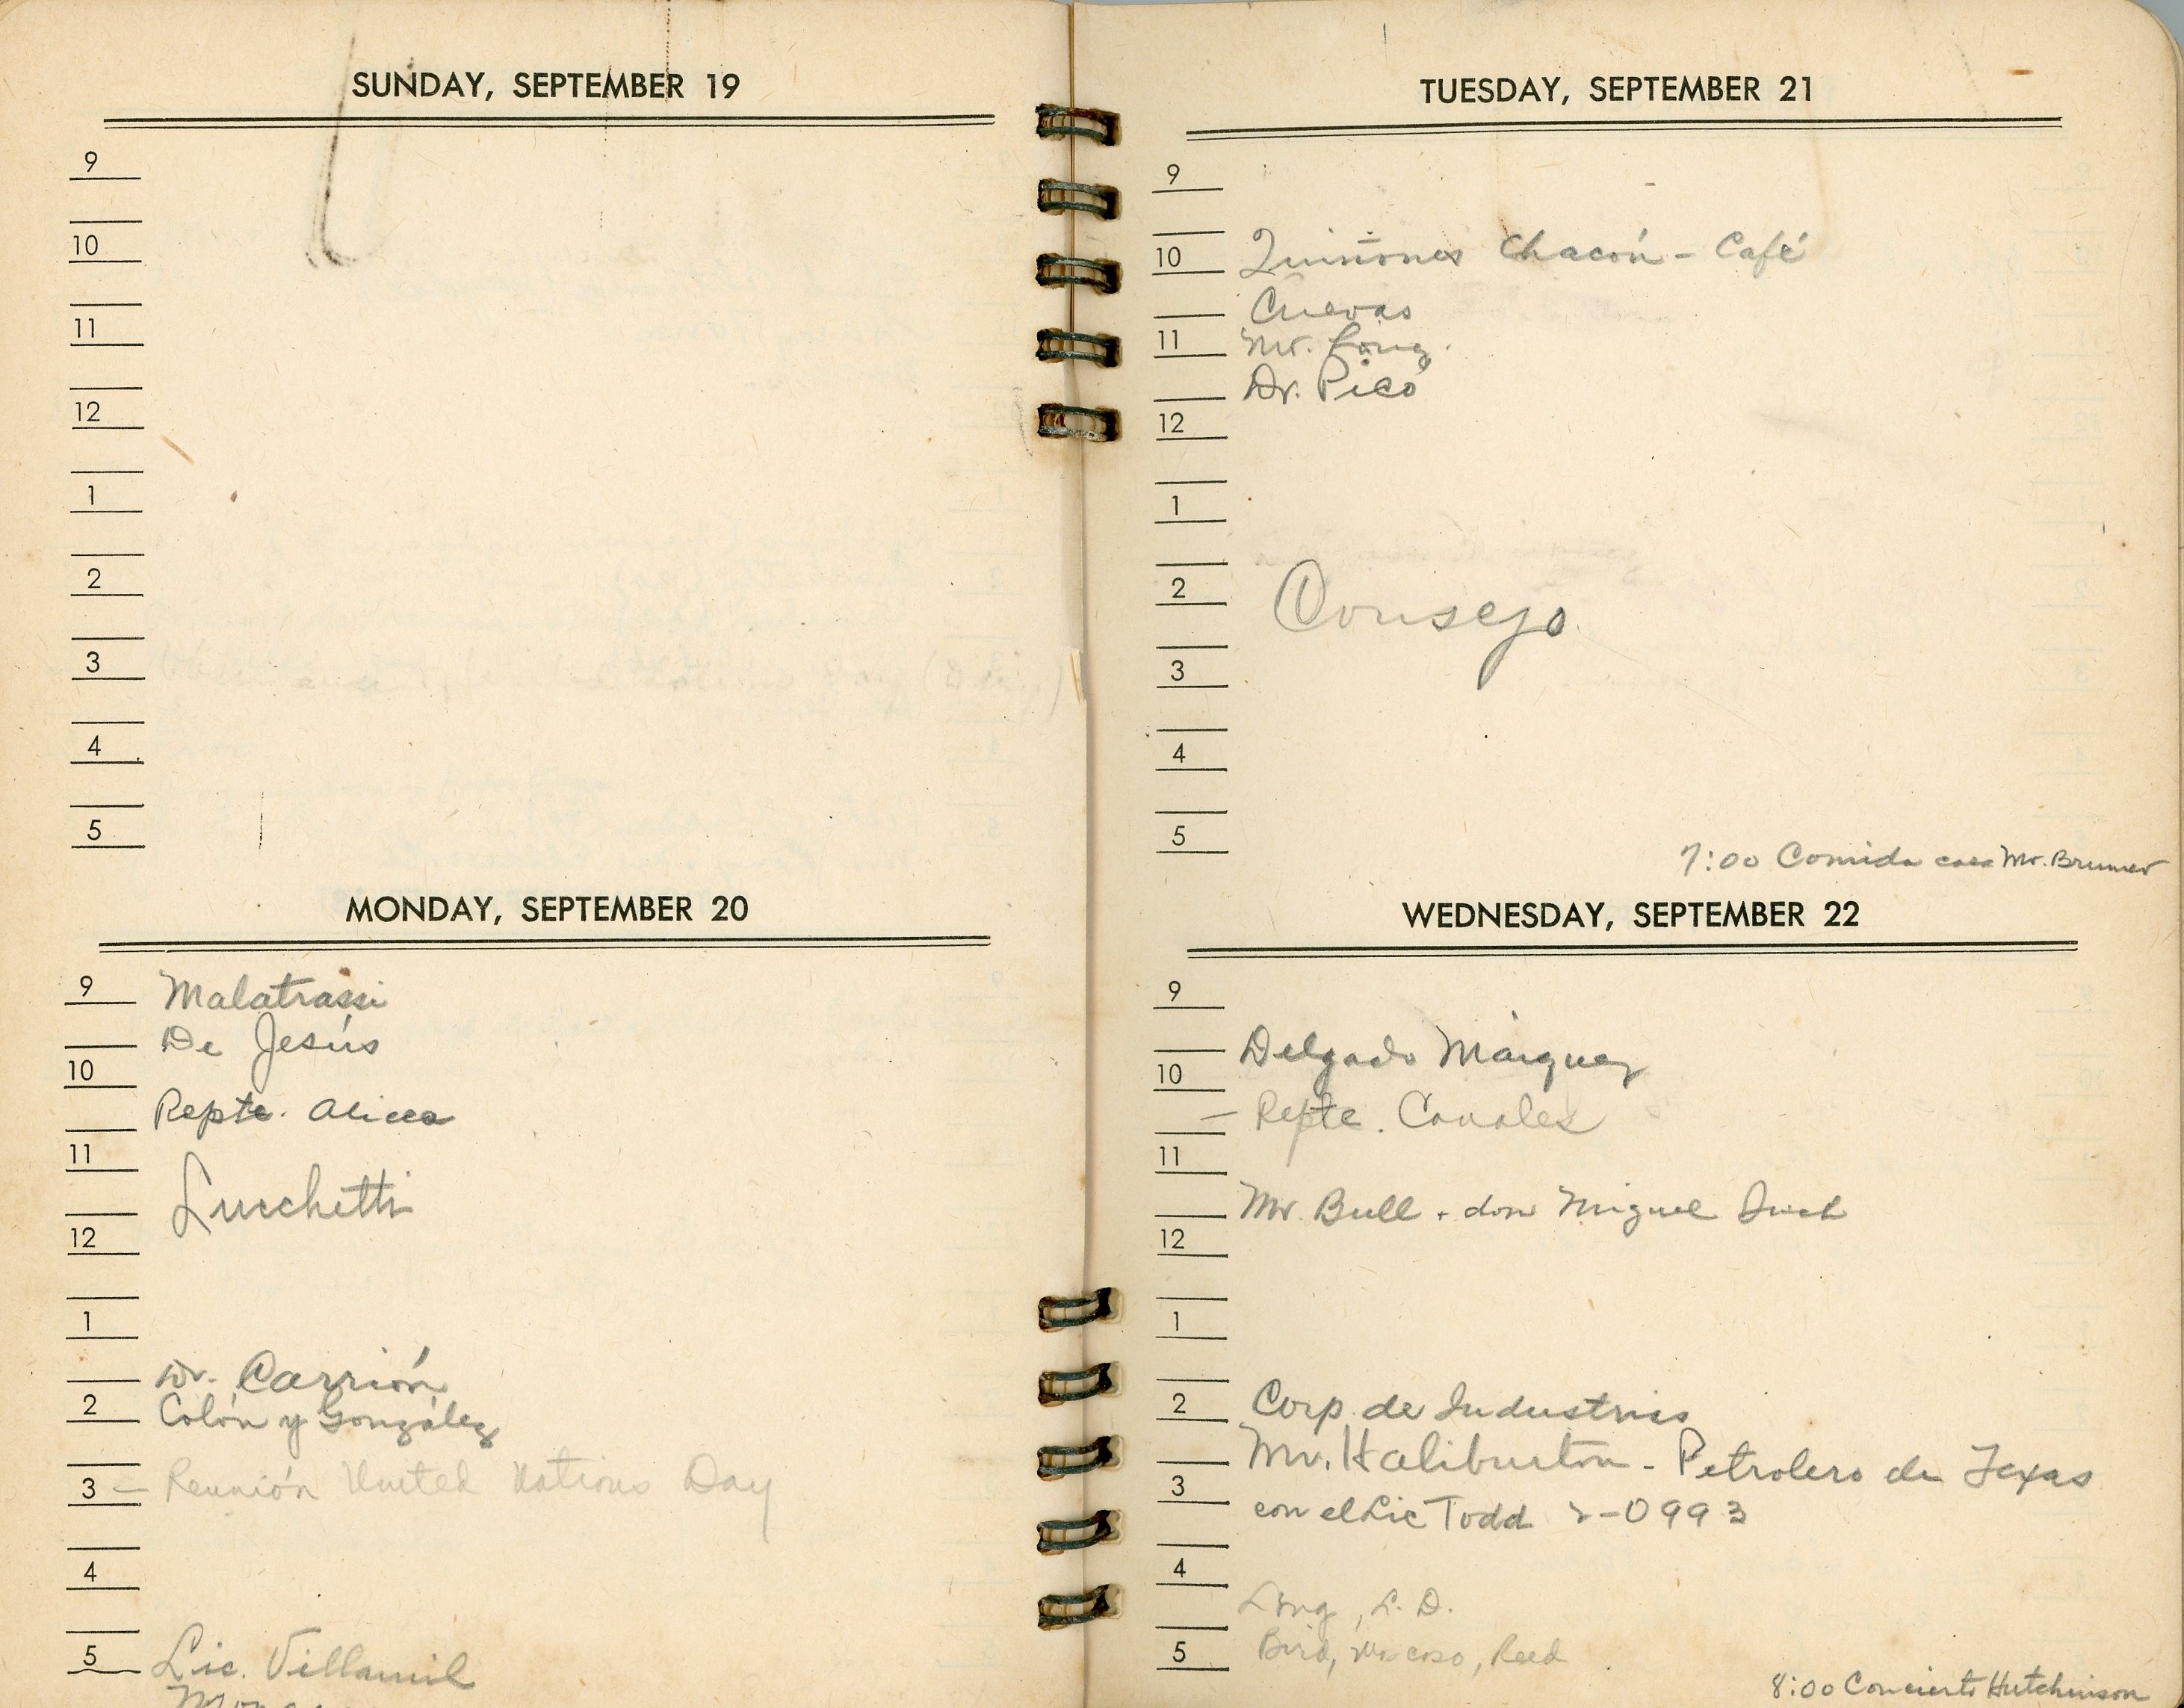 SUNDAY, SEPTEMBER 19
9
10
11
12
1
2
3
4
5
MONDAY, SEPTEMBER 20
9 Malatrassi
De Jesús
10
Repte. Alicea
11
Lucchetti
12
1
Dr. Carrión
2 Colón y González
3 – Reunión United Nations Day
4
5 Lic. Villamil
TUESDAY, SEPTEMBER 21
9
10 Quiñones Chacón – Café
Cuevas
11 Mr. Long.
Dr. Picó
12
1
2 Consejo
3
4
5
7:00 Comida casa Mr. Brunner
WEDNESDAY, SEPTEMBER 22
9
Delgado Márquez
10
– Repte. Canales
11
Mr. Bull . don Miguel
12
1
2 Corp. de Industrias
Mr. Haliburton – Petrolero de Texas
3
con el Lic Todd 2-0993
4
Long, L. D.
5 Bird, Moscoso, Reed
8:00 Concierto Hutchinson